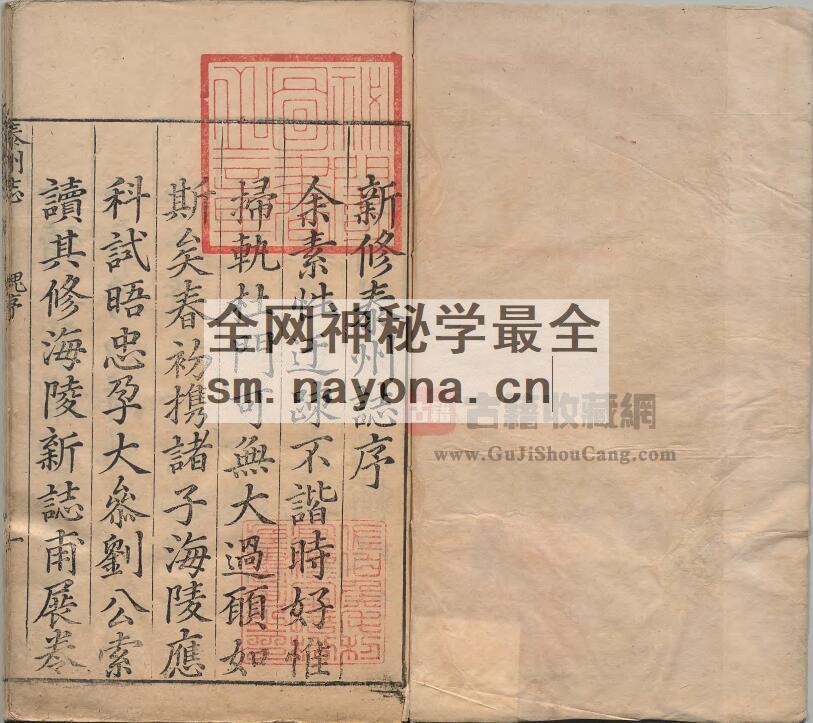 新修泰州誌序
余素性迂踈不諧時好惟
掃軌杜門可無大過頋如
斯矣春初携諸子海陵應
科試晤忠孕大叅劉公索
讀其修海陵新誌甫展卷
泰州誌
序
一
全网神秘学最全
sm.nayona.cn
古籍
古籍收藏網
www.GuJiShouCang.com